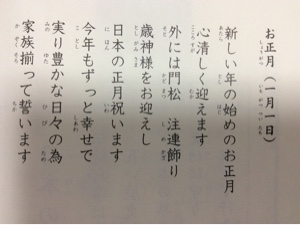 お正月（一月一日）
新しい年の始めのお正月
心清しく迎えます
外には門松　注連飾り
歳神様をお迎えし
日本の正月祝います
今年もずっと幸せで
実り豊かな日々の為
家族揃って誓います